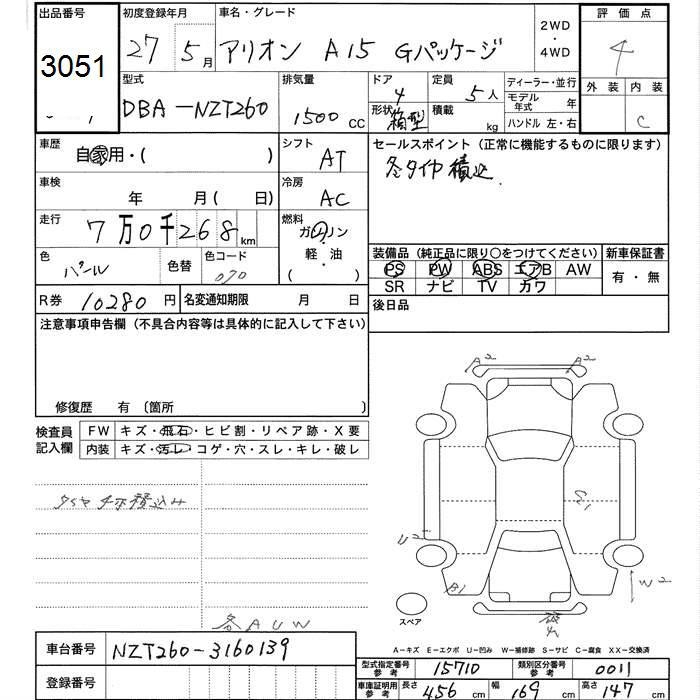 出品番号 初度登録年月 車名・グレード 2WD・4WD 評価点
3051 27 5月 アリオン A15 Gパッケージ 4
型式 排気量 ドア 定員 ディーラー・並行 外装 内装
DBA-NZT260 1500 CC 4 5人 モデル年式 年 C
形状 箱型 積載 kg ハンドル 左・右
車歴 自家用・( ) シフト AT セールスポイント(正常に機能するものに限ります)
冬タイヤ積込
車検 年 月( 日) 冷房 AC
走行 7万0千268km 燃料 ガソリン・軽油 ( )
色 パール 色替 色コード 070
装備品(純正品に限り○をつけてください) 新車保証書
PS PW ABS エアB AW 有・無
SR ナビ TV カワ
R券 10280円 名変通知期限 月 日 後日品
注意事項申告欄(不具合内容等は具体的に記入して下さい)
修復歴 有 〔箇所 〕
検査員記入欄 FW キズ・飛石・ヒビ割・リペア跡・X要
内装 キズ・汚レ・コゲ・穴・スレ・キレ・破レ
タイヤ 4本積込み
各AUW
A2 A2
U2
B1
W2
スペア
A-キズ E-エクボ U-凹み W-補修跡 S-サビ C-腐食 XX-交換済
車台番号 NZT260-3160139
登録番号
型式指定番号 参考 15710 類別区分番号 参考 0011
車庫証明用 参考 長さ 456cm 幅 169cm 高さ 147cm